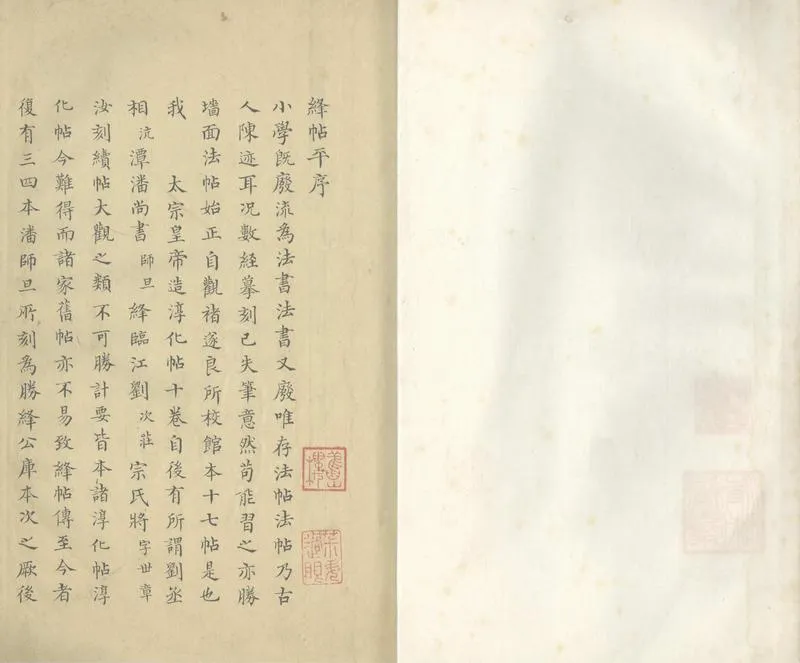 絳帖平序
小學旣廢流為法書法書又廢唯存法帖法帖乃古
人陳迹耳况數經摹刻已失筆意然苟能習之亦勝
墻面法帖始正自觀褚遂良所校館本十七帖是也
我 太宗皇帝造淳化帖十卷自後有所謂劉丞
相沆潭潘尚書師旦絳臨江劉次莊宗氏將字世章
汝刻續帖大觀之類不可勝計要皆本諸淳化帖淳
化帖今難得而諸家舊帖亦不易致絳帖傳至今者
復有三四本潘師旦所刻為勝絳公庫本次之厥後